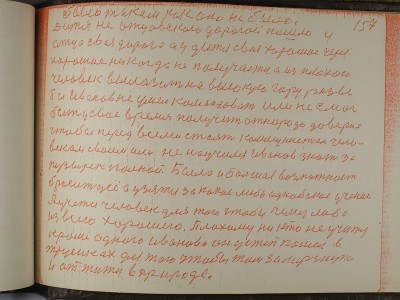 было таким как оно не было. 157
Дитя не отцовского дорогой пошло у
отца своя дорога а у дитя своя хорошое через
хорошое никогда не получается а из плохого
человек вылазит на высокую гору разве
бы Иванов не умел командовать или не смог
бы в свое время получить от народа доверие
чтобы перед всеми стоять коммунистом чело-
веком своим или не научился Иванов знать за
пузырек полной Была и большая возможность
бросить всё а взяти за какое либо одно более учение
Я учёти человек для того чтобы чему либо
из него хорошего. Плохому никто не учить
кроме одного Иванова он детей послов в
трусиках для того чтобы там замерзнуть
и от жить в природе.